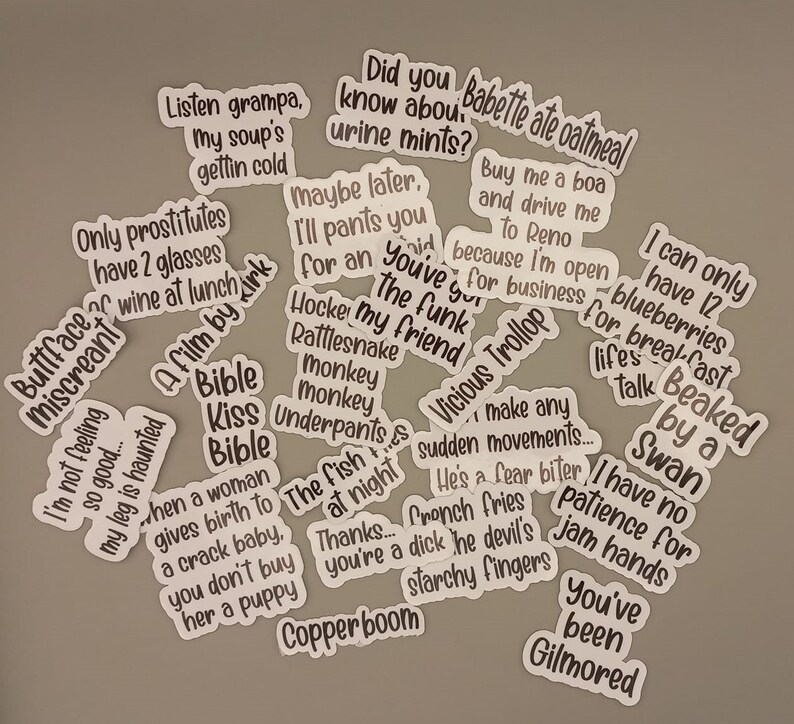 Listen grampa,
my soup's
gettin cold
Did you
know about
urine mints?
Babette ate oatmeal
Maybe later,
I'll pants you
for an
Buy me a boa
and drive me
to Reno
because I'm open
for business
Only prostitutes
have 2 glasses
of wine at lunch
A film by Kirk
You've got
the funk
my friend
I can only
have 12
blueberries
for breakfast
Buttface
miscreant
Hockey
Rattlesnake
Monkey
Monkey
Underpants
Vicious Trollop
life's
talk
Beaked
by a
Swan
Bible
Kiss
Bible
I'm not feeling
so good...
my leg is haunted
make any
sudden movements...
He's a fear biter
The fish flies
at night
When a woman
gives birth to
a crack baby,
you don't buy
her a puppy
Thanks...
you're a dick
French fries
the devil's
starchy fingers
I have no
patience for
jam hands
Copperboom
You've
been
Gilmored